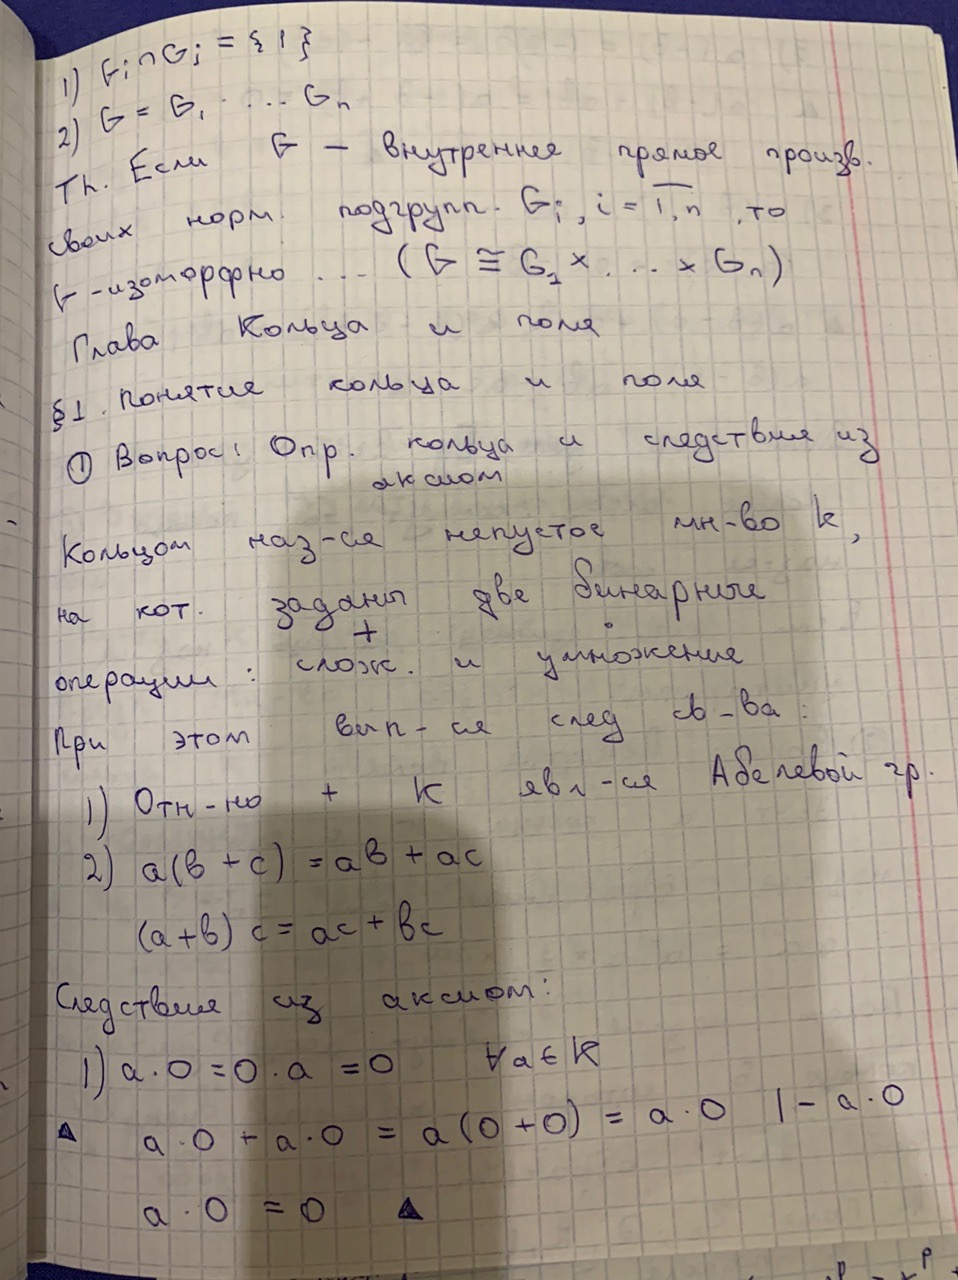 1) Gi ∩ Gj = {1}
2) G = G₁ · ... Gn
Th. Если G – внутреннее прямое произв.
своих норм. подгрупп. Gi, i = 1,n, то
G -изоморфно ... (G ≅ G₁ × ... × Gn)
Глава Кольца и поля
§1. Понятие кольца и поля
① Вопрос: Опр. кольца и следствия из
аксиом
Кольцом наз-ся непустое мн-во K,
на кот. заданы две бинарные
+ ·
операции: слож. и умножение
При этом вып-ся след св-ва:
1) Отн-но + K явл-ся Абелевой гр.
2) a(в + c) = aв + ac
(a+в) c = ac + вc
Следствия из аксиом:
1) a·0 = 0·a = 0 ∀a ∈ K
a·0 + a·0 = a(0+0) = a·0 | - a·0
a·0 = 0